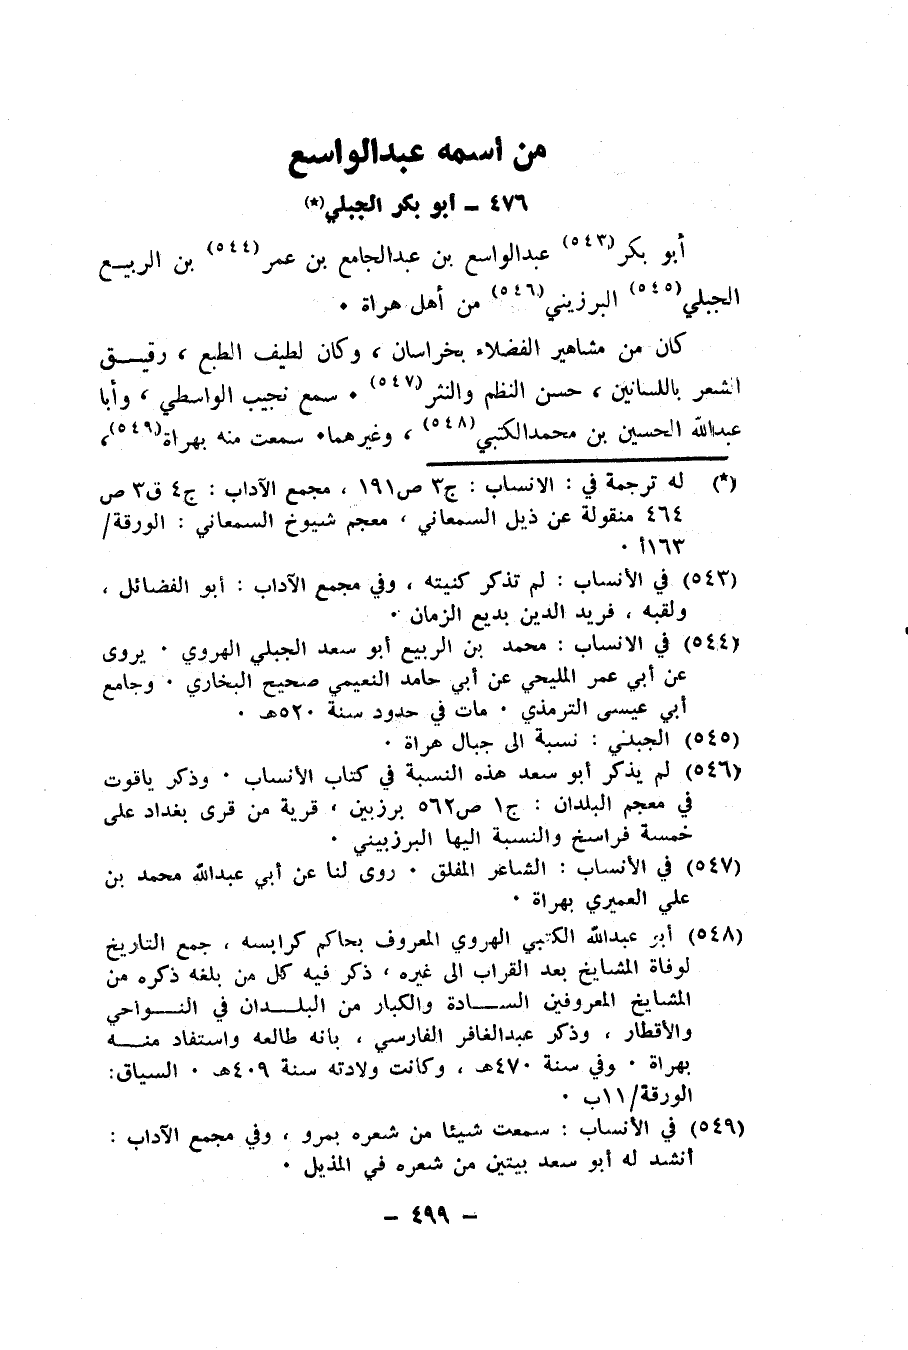 من اسمه عبدالواسع
٤٧٦ ـ ابو بكر الجبلي(*)
أبو بكر(٥٤٣) عبدالواسع بن عبدالجامع بن عمر(٥٤٤) بن الربيـع
الجبلي(٥٤٥) البرزيني(٥٤٦) من أهل هراة ٠
كان من مشاهير الفضلاء بخراسان ، وكان لطيف الطبع ، رقيـــق
الشعر باللسانين ، حسن النظم والنثر(٥٤٧) ٠ سمع نجيب الواسطي ، وأبا
عبدالله الحسين بن محمدالكتبي(٥٤٨) ، وغيرهما٠ سمعت منه بهراة(٥٤٩)،
(*) له ترجمة في : الانساب : ج٣ ص١٩١ ، مجمع الآداب : ج٤ ق٣ ص
٤٦٤ منقولة عن ذيل السمعاني ، معجم شيوخ السمعاني : الورقة/
١٦٣أ ٠
(٥٤٣) في الأنساب : لم تذكر كنيته ، وفي مجمع الآداب : أبو الفضائل ،
ولقبه ، فريد الدين بديع الزمان ٠
(٥٤٤) في الانساب : محمد بن الربيع أبو سعد الجبلي الهروي ٠ يروى
عن أبي عمر المليحي عن أبي حامد النعيمي صحيح البخاري ٠ وجامع
أبي عيسى الترمذي ٠ مات في حدود سنة ٥٢٠هـ ٠
(٥٤٥) الجبلي : نسبة الى جبال هراة ٠
(٥٤٦) لم يذكر أبو سعد هذه النسبة في كتاب الأنساب ٠ وذكر ياقوت
في معجم البلدان : ج١ ص٥٦٢ برزبين ، قرية من قرى بغداد على
خمسة فراسخ والنسبة اليها البرزبيني ٠
(٥٤٧) في الأنساب : الشاعر المفلق ٠ روى لنا عن أبي عبدالله محمد بن
علي العميري بهراة ٠
(٥٤٨) أبو عبدالله الكتبي الهروي المعروف بحاكم كرابسه ، جمع التاريخ
لوفاة المشايخ بعد القراب الى غيره ، ذكر فيه كل من بلغه ذكره من
المشايخ المعروفين الســـادة والكبار من البلـــدان في النـــواحي
والأقطار ، وذكر عبدالغافر الفارسي ، بانه طالعه واستفاد منـــه
بهراة ٠ وفي سنة ٤٧٠هـ ، وكانت ولادته سنة ٤٠٩هـ ٠ السياق:
الورقة/١١ب ٠
(٥٤٩) في الأنساب : سمعت شيئا من شعره بمرو ، وفي مجمع الآداب :
أنشد له أبو سعد بيتين من شعره في المذيل ٠
ـ ٤٩٩ ـ